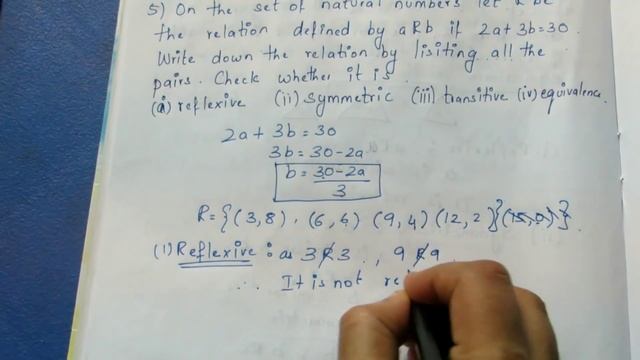 5) On the set of natural numbers let R be
the relation defined by aRb if 2a+3b=30.
Write down the relation by lisiting all the
pairs. Check whether it is
(i) reflexive (ii) Symmetric (iii) transitive (iv) equivalence.
2a + 3b = 30
3b = 30-2a
b = 30-2a
3
R = {(3,8), (6,6) (9,4) (12,2)}(15,0)}.
(1) Reflexive : as 3R̸3 ., 9R̸9.
∴ It is not re